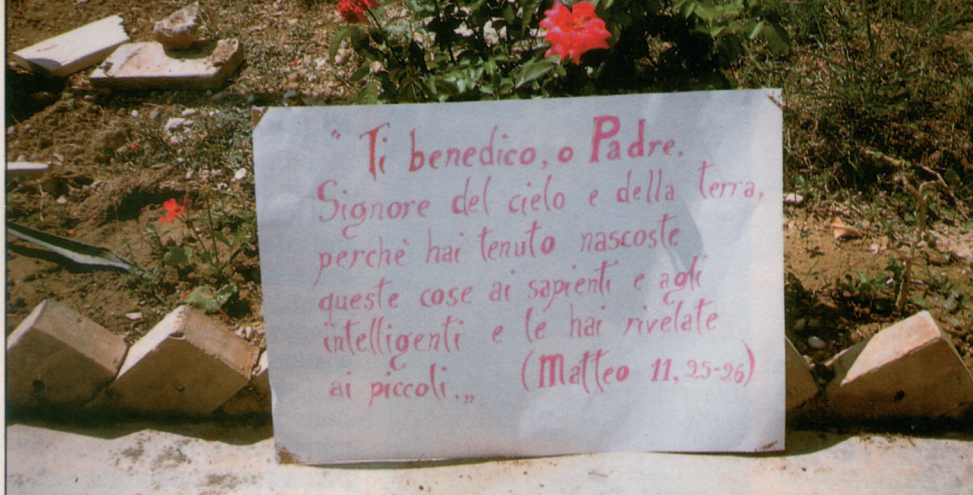 " Ti benedico, o Padre,
Signore del cielo e della terra,
perchè hai tenuto nascoste
queste cose ai sapienti e agli
intelligenti e le hai rivelate
ai piccoli.„ (Matteo 11, 25-26)